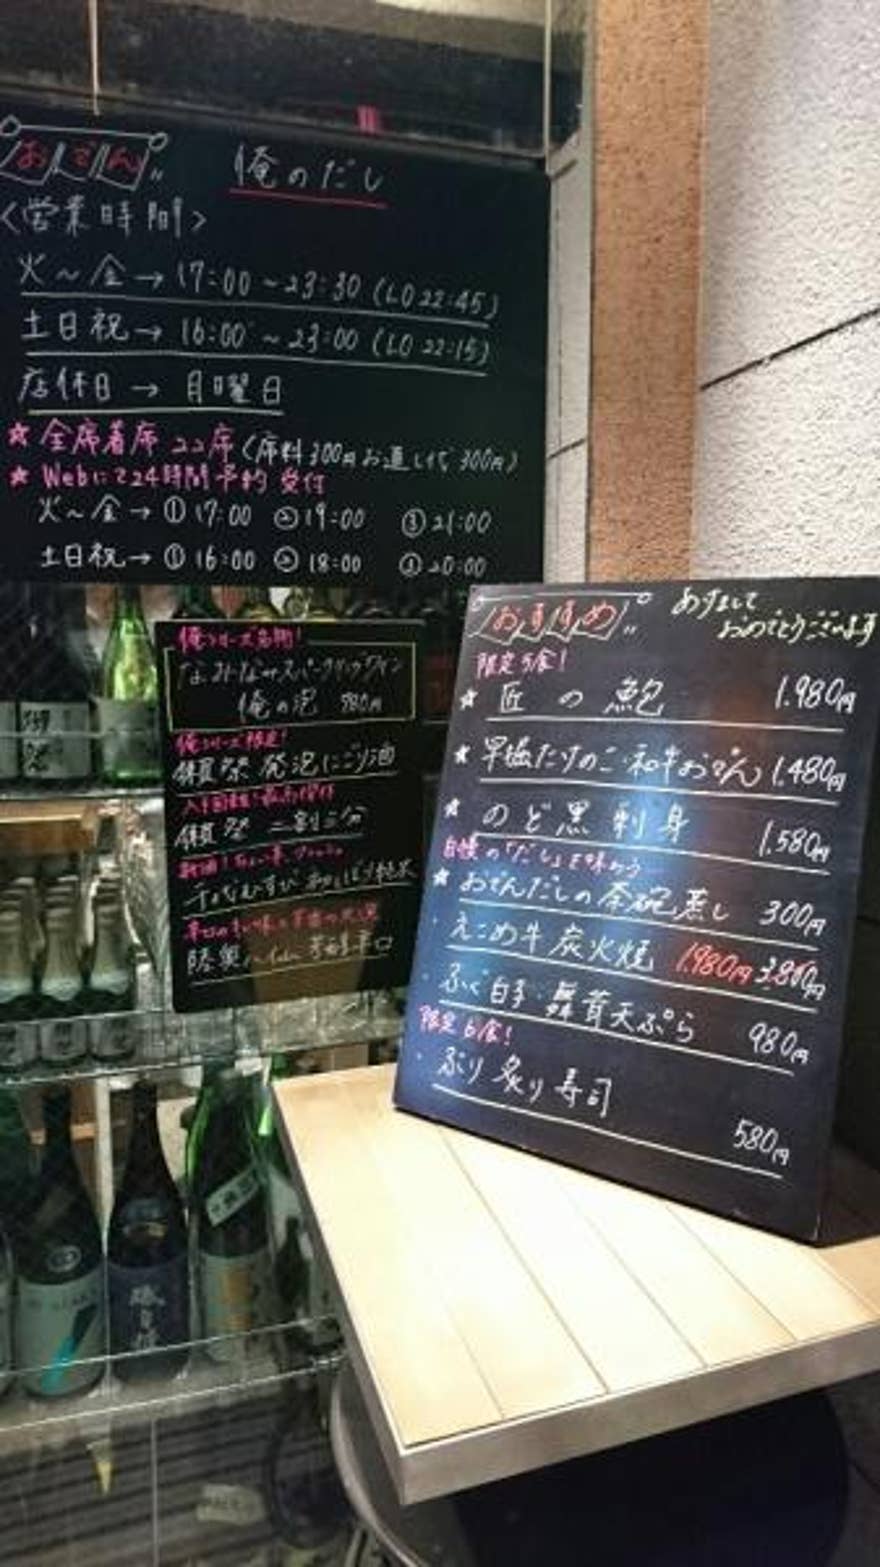 おでん 俺のだし
<営業時間>
火〜金→17:00〜23:30(LO22:45)
土日祝→16:00〜23:00(LO22:15)
店休日→月曜日
★全席着席22席(席料300円お通し代300円)
★Webにて24時間予約受付
火〜金→①17:00 ②19:00 ③21:00
土日祝→①16:00 ②18:00 ③20:00
俺シリーズ名物!
なみなみスパークリングワイン
俺の泡 980円
俺シリーズ限定!
獺祭 発泡にごり酒
獺祭 二割三分
陸奥八仙
おすすめ
あけまして
おめでとうございます
限定5食!
★匠の鮑 1.980円
★早堀たけのこ・和牛おでん 1.480円
★のど黒刺身 1.580円
自慢の「だし」を味わう
★おでんだしの茶碗蒸し 300円
・えこめ牛炭火焼 1.980円 3.860円
・ふぐ白子・舞茸天ぷら 980円
限定6食!
・ぶり炙り寿司 580円